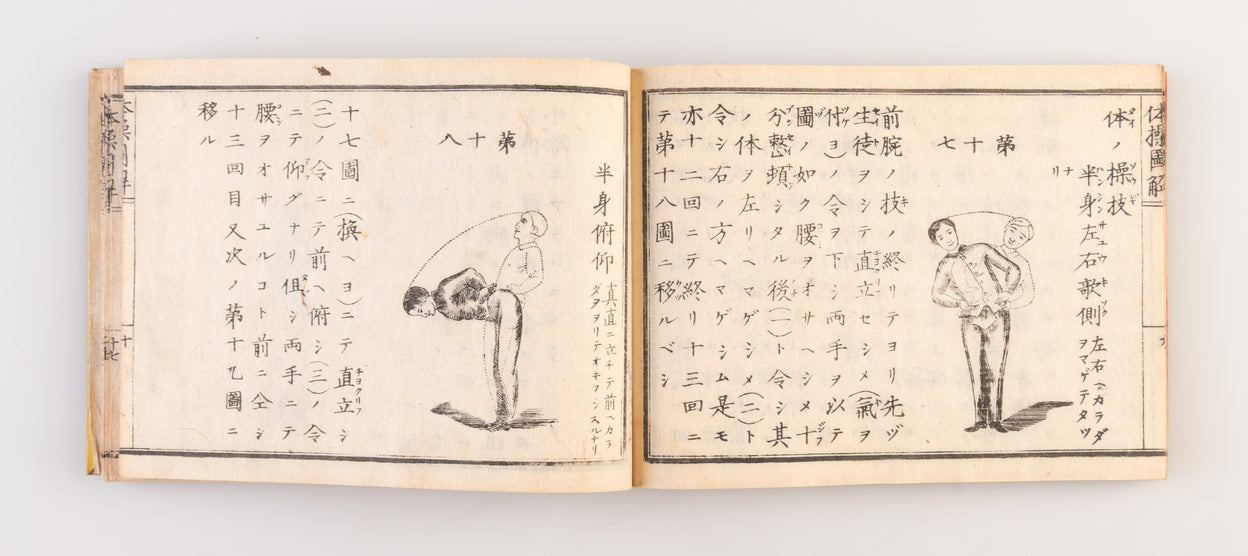 体操圖解
体ノ操技
半身左右欹側 左右ヘカラダ
ヲマゲテタツ
ナリ
第十七
前腕ノ技ノ終リテヨリ先ヅ
生徒ヲシテ直立セシメ(氣ヲ
付ヨ)ノ令ヲ下シ両手ヲ以テ
圖ノ如ク腰ヲオサヘシメ十
分整頓シタル後(一)ト令シ其
ノ体ヲ左リヘマゲシメ(二)ト
令シ右ノ方ヘマゲシム是モ
亦十二回ニテ終リ十三回ニ
テ第十八圖ニ移ルベシ
半身俯仰 真直ニ立チテ前ヘカラ
ダヲヲリテオキフシスルナリ
第十八
十七圖ニ(換ヘヨ)ニテ直立シ
(二)ノ令ニテ前ヘ俯シ(三)ノ令
ニテ仰グナリ但シ両手ニテ
腰ヲオサユルコト前ニ仝シ
十三回目又次ノ第十九圖ニ
移ル